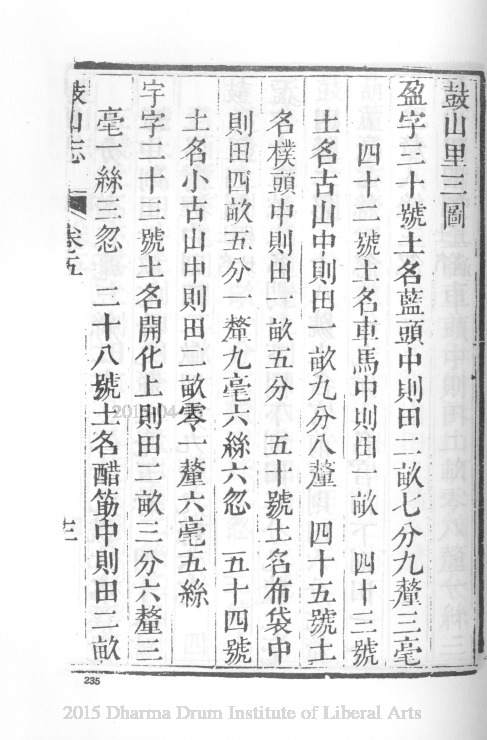 鼓山里三圖
盈字三十號土名藍頭中則田二畝七分九釐三毫
四十二號土名車馬中則田一畝　四十三號
土名古山中則田一畝九分八釐　四十五號土
名樸頭中則田一畝五分　五十號土名布袋中
則田四畝五分一釐九毫六絲六忽　五十四號
土名小古山中則田二畝零一釐六毫五絲
宇字二十三號土名開化上則田二畝三分六釐三
毫一絲三忽　三十八號土名醋筯中則田二畝
鼓山志　卷五　十三
235
2015 Dharma Drum Institute of Liberal Arts